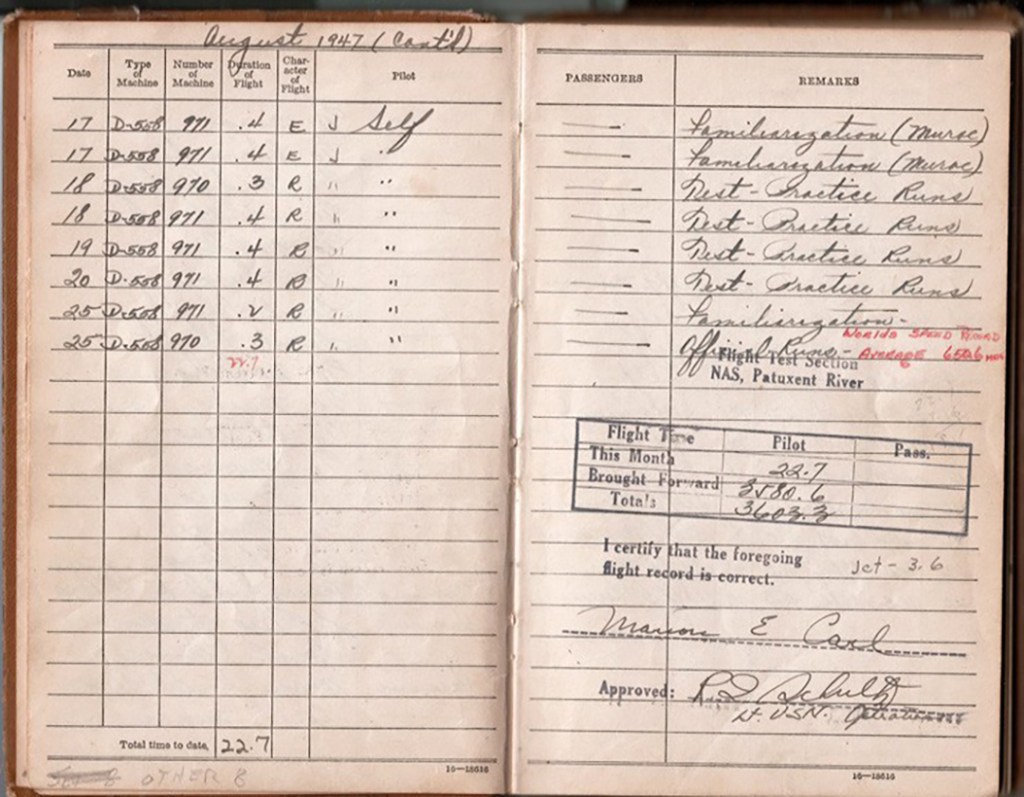 August 1947 (Cont'd)
Date Type of Machine Number of Machine Duration of Flight Character of Flight Pilot PASSENGERS REMARKS
17 D-558 971 .4 E J Self — Familiarization (Muroc)
17 D-558 971 .4 E J " — Familiarization (Muroc)
18 D-558 970 .3 R " " — Test - Practice Runs
18 D-558 971 .4 R " " — Test - Practice Runs
19 D-558 971 .4 R " " — Test - Practice Runs
20 D-558 971 .4 R " " — Test - Practice Runs
25 D-558 971 .2 R " " — Familiarization -
25 D-558 970 .3 R " " — Official Runs - WORLDS SPEED RECORD
AVERAGE 650.6 MPH
22.7
Flight Test Section
NAS, Patuxent River
Flight Time Pilot Pass.
This Month 22.7
Brought Forward 3580.6
Totals 3603.3
I certify that the foregoing
flight record is correct.
Jet - 3.6
Marion E Carl
Approved: R Schultz
Lt. USN. Operations
Total time to date, 22.7
OTHER 8
16—18616
16—18616